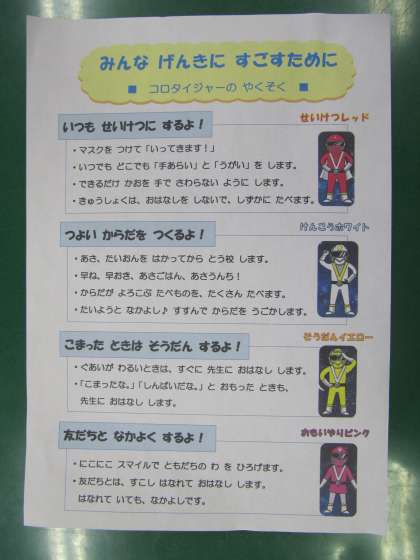 みんな げんきに すごすために
■ コロタイジャーの やくそく ■
せいけつレッド
いつも せいけつに するよ！
・マスクを つけて「いってきます！」
・いつでも どこでも「手あらい」と「うがい」を します。
・できるだけ かおを 手で さわらない ように します。
・きゅうしょくは、おはなしを しないで、しずかに たべます。
けんこうホワイト
つよい からだを つくるよ！
・あさ、たいおんを はかってから とう校 します。
・早ね、早おき、あさごはん、あさうんち！
・からだが よろこぶ たべものを、たくさん たべます。
・たいようと なかよし♪ すすんで からだを うごかします。
そうだんイエロー
こまった ときは そうだん するよ！
・ぐあいが わるいときは、すぐに 先生に おはなし します。
・「こまったな。」「しんぱいだな。」と おもった ときも、
先生に おはなし します。
おもいやりピンク
友だちと なかよく するよ！
・にこにこ スマイルで ともだちの わ を ひろげます。
・友だちとは、すこし はなれて おはなし します。
はなれて いても、なかよしです。